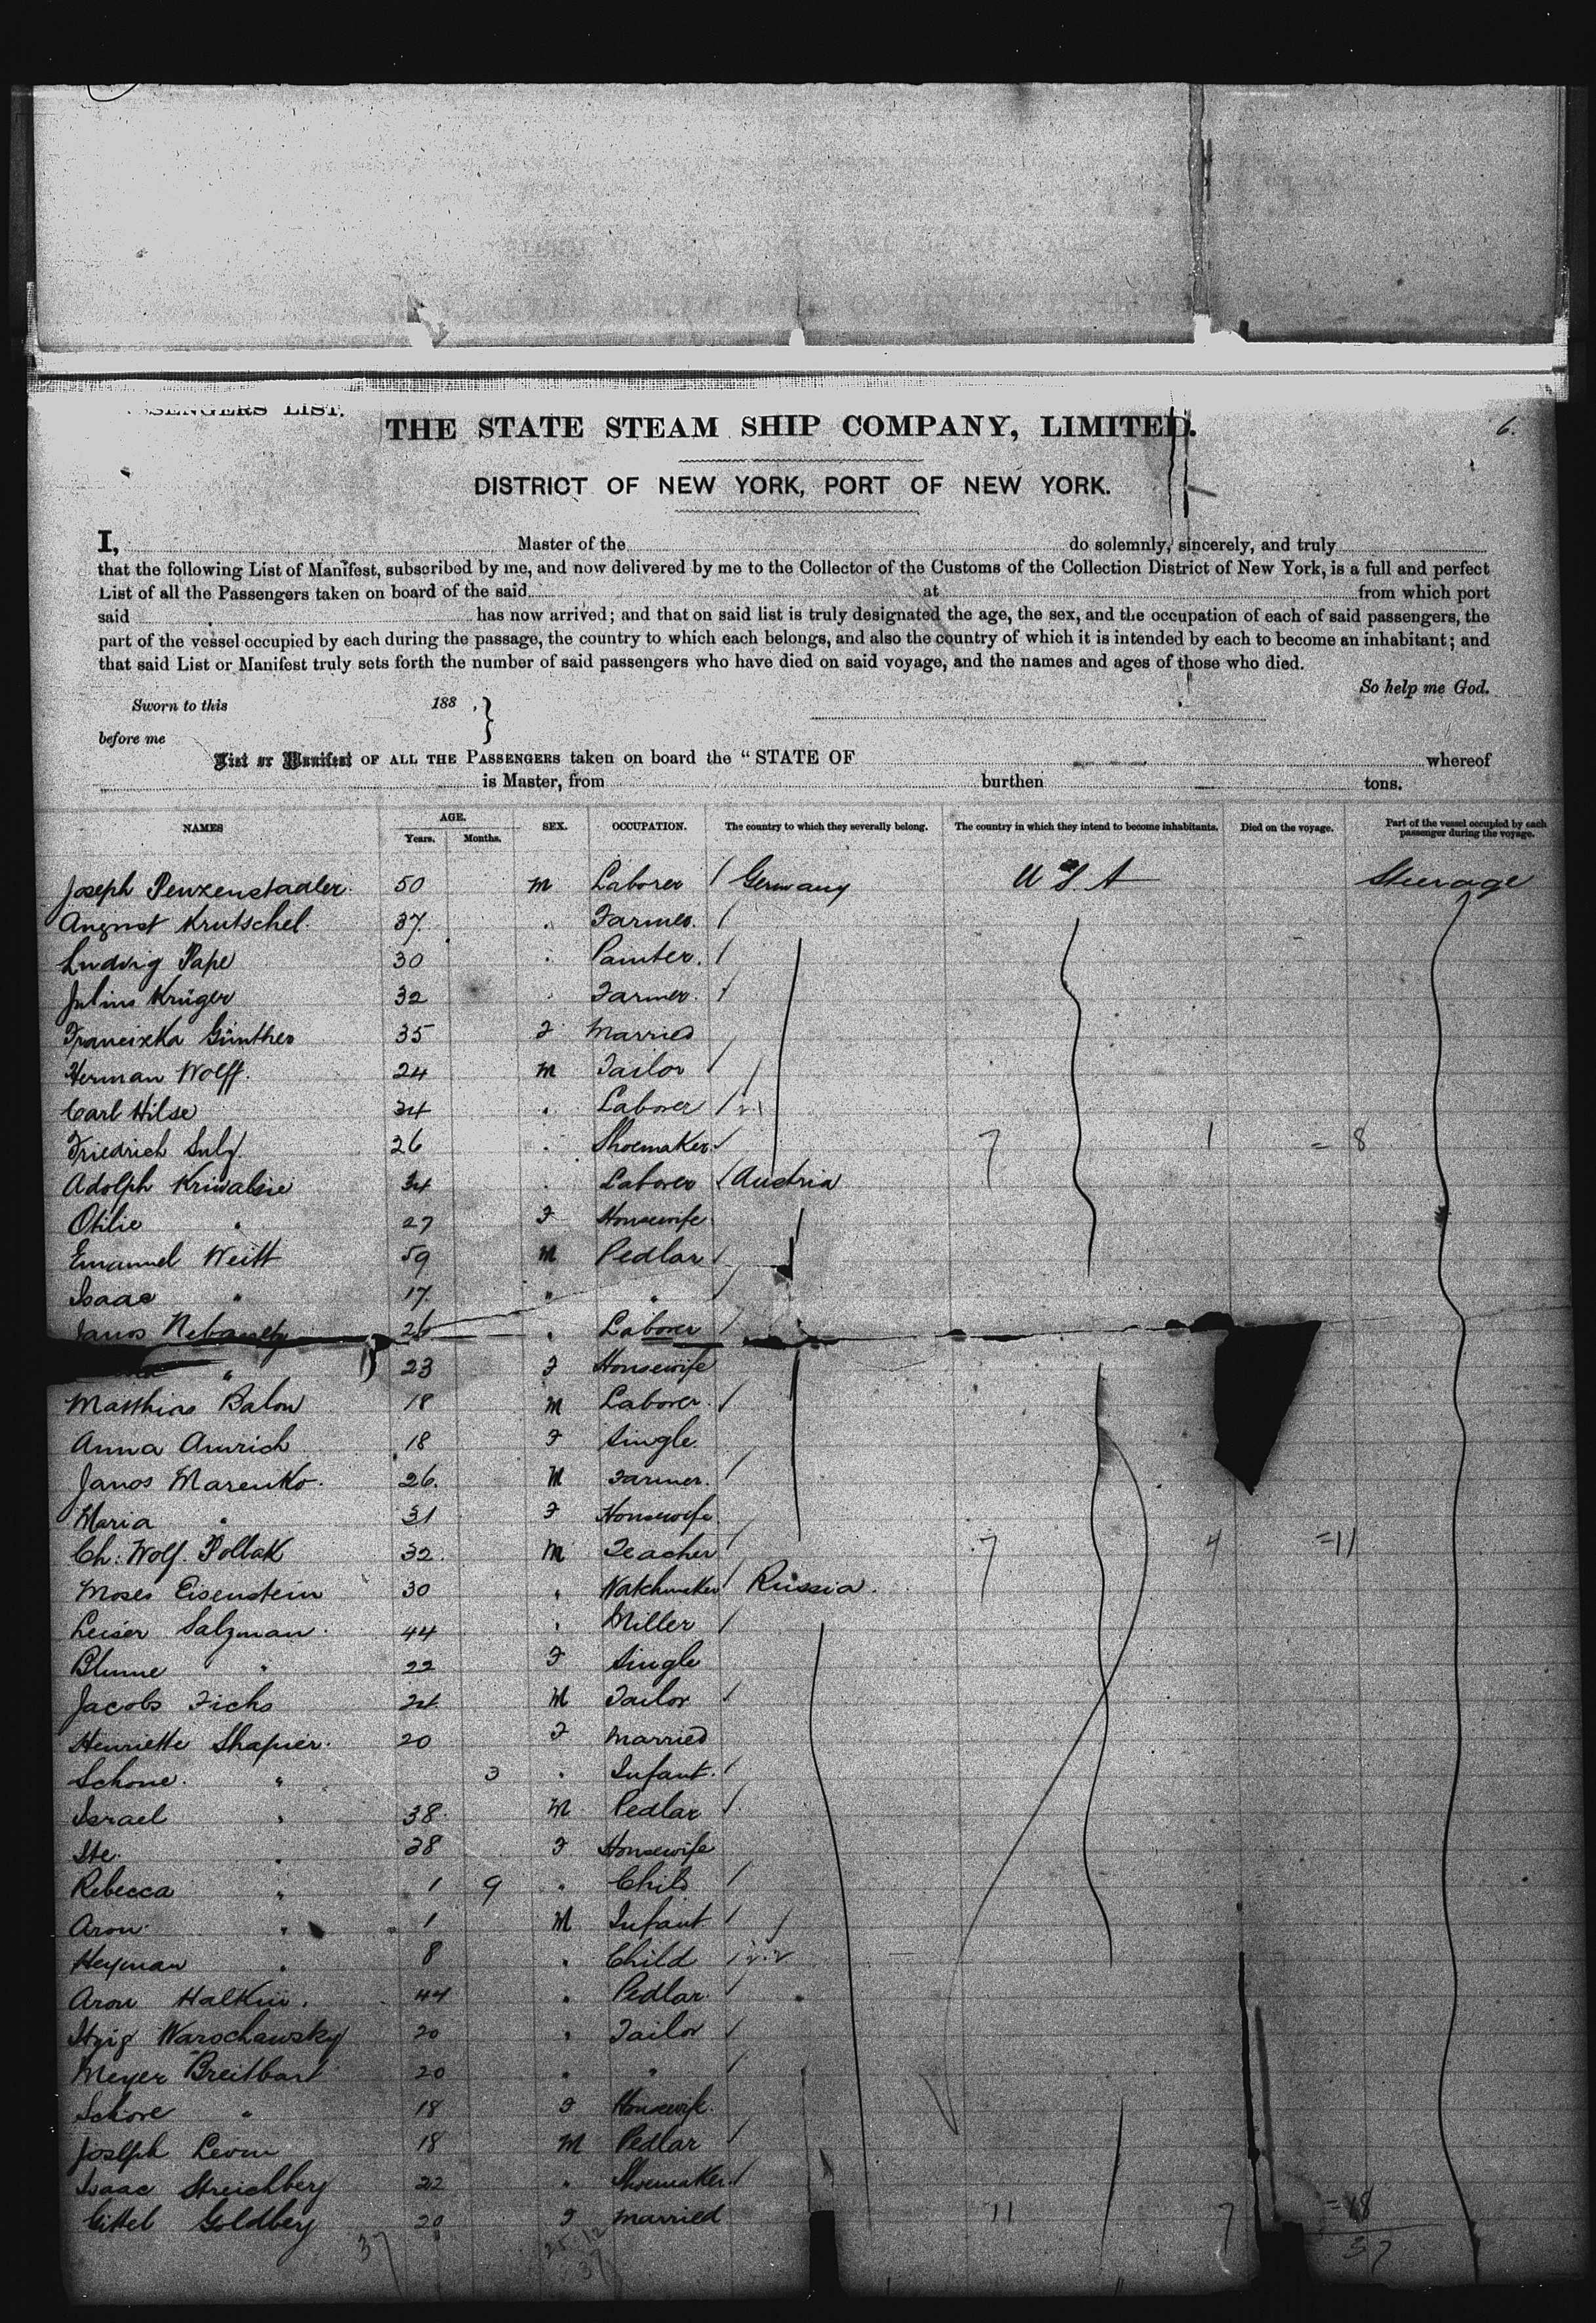 SENGERS LIST.
THE STATE STEAM SHIP COMPANY, LIMITED.
6.
DISTRICT OF NEW YORK, PORT OF NEW YORK.
I, Master of the do solemnly, sincerely, and truly
that the following List of Manifest, subscribed by me, and now delivered by me to the Collector of the Customs of the Collection District of New York, is a full and perfect
List of all the Passengers taken on board of the said at from which port
said has now arrived; and that on said list is truly designated the age, the sex, and the occupation of each of said passengers, the
part of the vessel occupied by each during the passage, the country to which each belongs, and also the country of which it is intended by each to become an inhabitant; and
that said List or Manifest truly sets forth the number of said passengers who have died on said voyage, and the names and ages of those who died.
So help me God.
Sworn to this 188 , }
before me
List or Manifest OF ALL THE PASSENGERS taken on board the "STATE OF whereof
is Master, from burthen tons.
NAMES AGE. Years. Months. SEX. OCCUPATION. The country to which they severally belong. The country in which they intend to become inhabitants. Died on the voyage. Part of the vessel occupied by each passenger during the voyage.
Joseph Penzenstadler 50 M Laborer / Germany U S A Steerage
August Krutschel 37 " Farmer /
Ludvig Pape 30 " Painter /
Julius Krüger 32 " Farmer /
Franciska Günther 35 F Married
Herman Wolff 24 M Tailor /
Carl Hilse 34 " Laborer /
Friedrich 26 " Shoemaker / 7 1 = 8
Adolph 34 " Laborer / Austria
Otilie " 27 F Housewife
Emanuel Weitt 59 M Pedlar /
Isaac " 17 " " /
Janos 26 " Laborer /
" 23 F Housewife
Matthias Balon 18 M Laborer /
Anna 18 F Single
Janos Marenko 26 M Farmer /
Maria " 31 F Housewife
Ch: Wolf Pollak 32 M Teacher / 7 4 =11
Moses Eisenstein 30 " Watchmaker / Russia
Leiser Salzman 44 " Miller /
Blume " 22 F Single
Jacobs Fichs 24 M Tailor /
Henriette Shapier 20 F Married
Schone " 3 " Infant /
Israel " 38 M Pedlar /
Ite " 38 F Housewife
Rebecca " 1 9 " Child /
Aron " 1 M Infant /
Heyman " 8 " Child /
Aron Halkin 44 " Pedlar /
Itzig Warschawsky 20 " Tailor /
Meyer Breitbart 20 " " /
Schore " 18 F Housewife
Joseph Levin 18 M Pedlar /
Isaac Streichberg 22 " Shoemaker /
Gittel Goldberg 20 F Married 11 7 =18
37 25 12 37
37